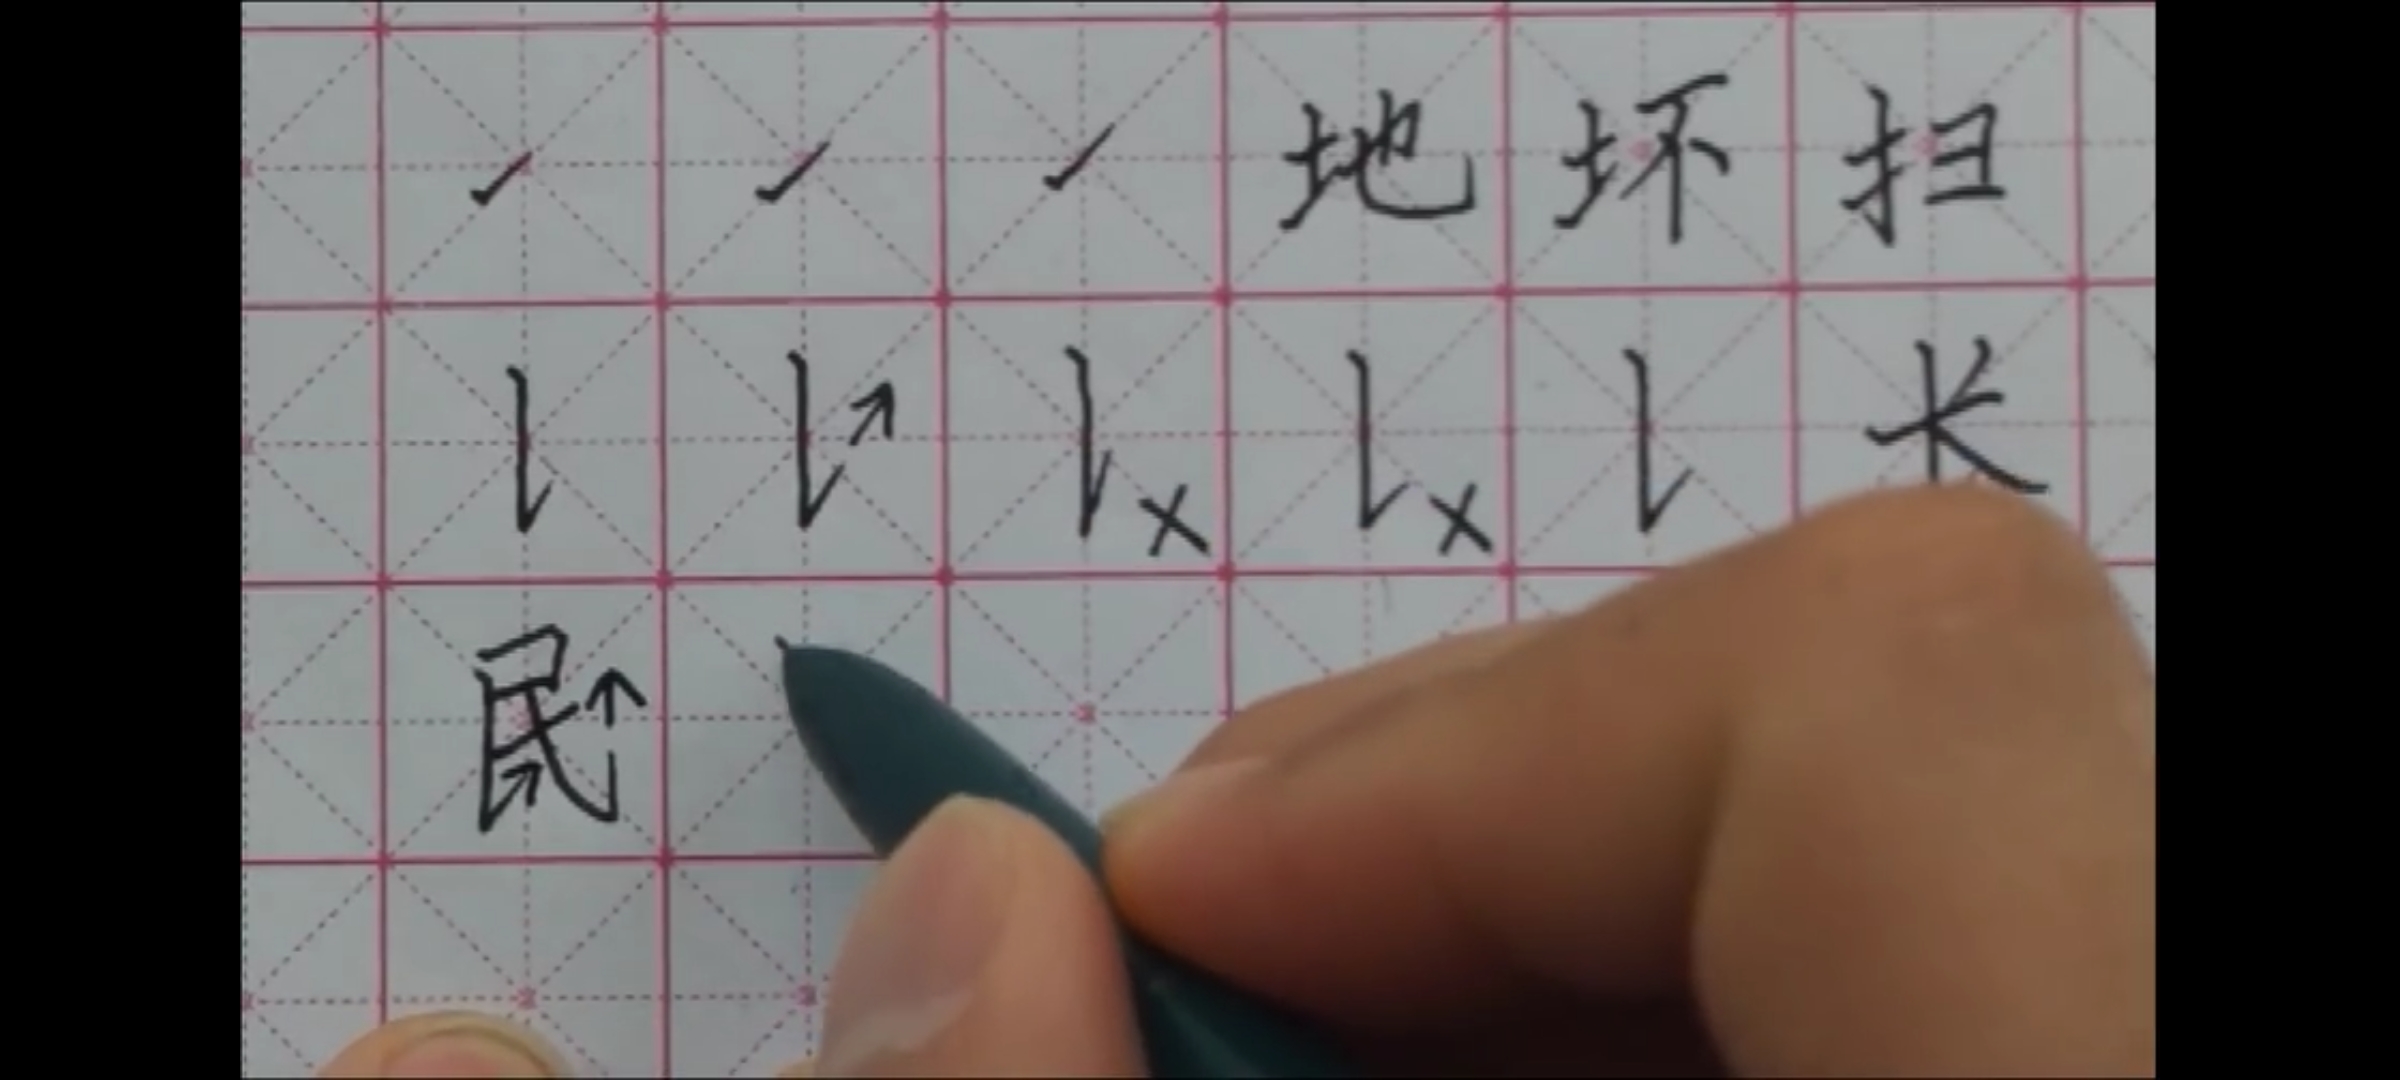 ㇀ ㇀ ㇀ 地 坏 扫
𠄌 𠄌 ↗ 𠄌 × 𠄌 × 𠄌 长
民 ↗ ↑